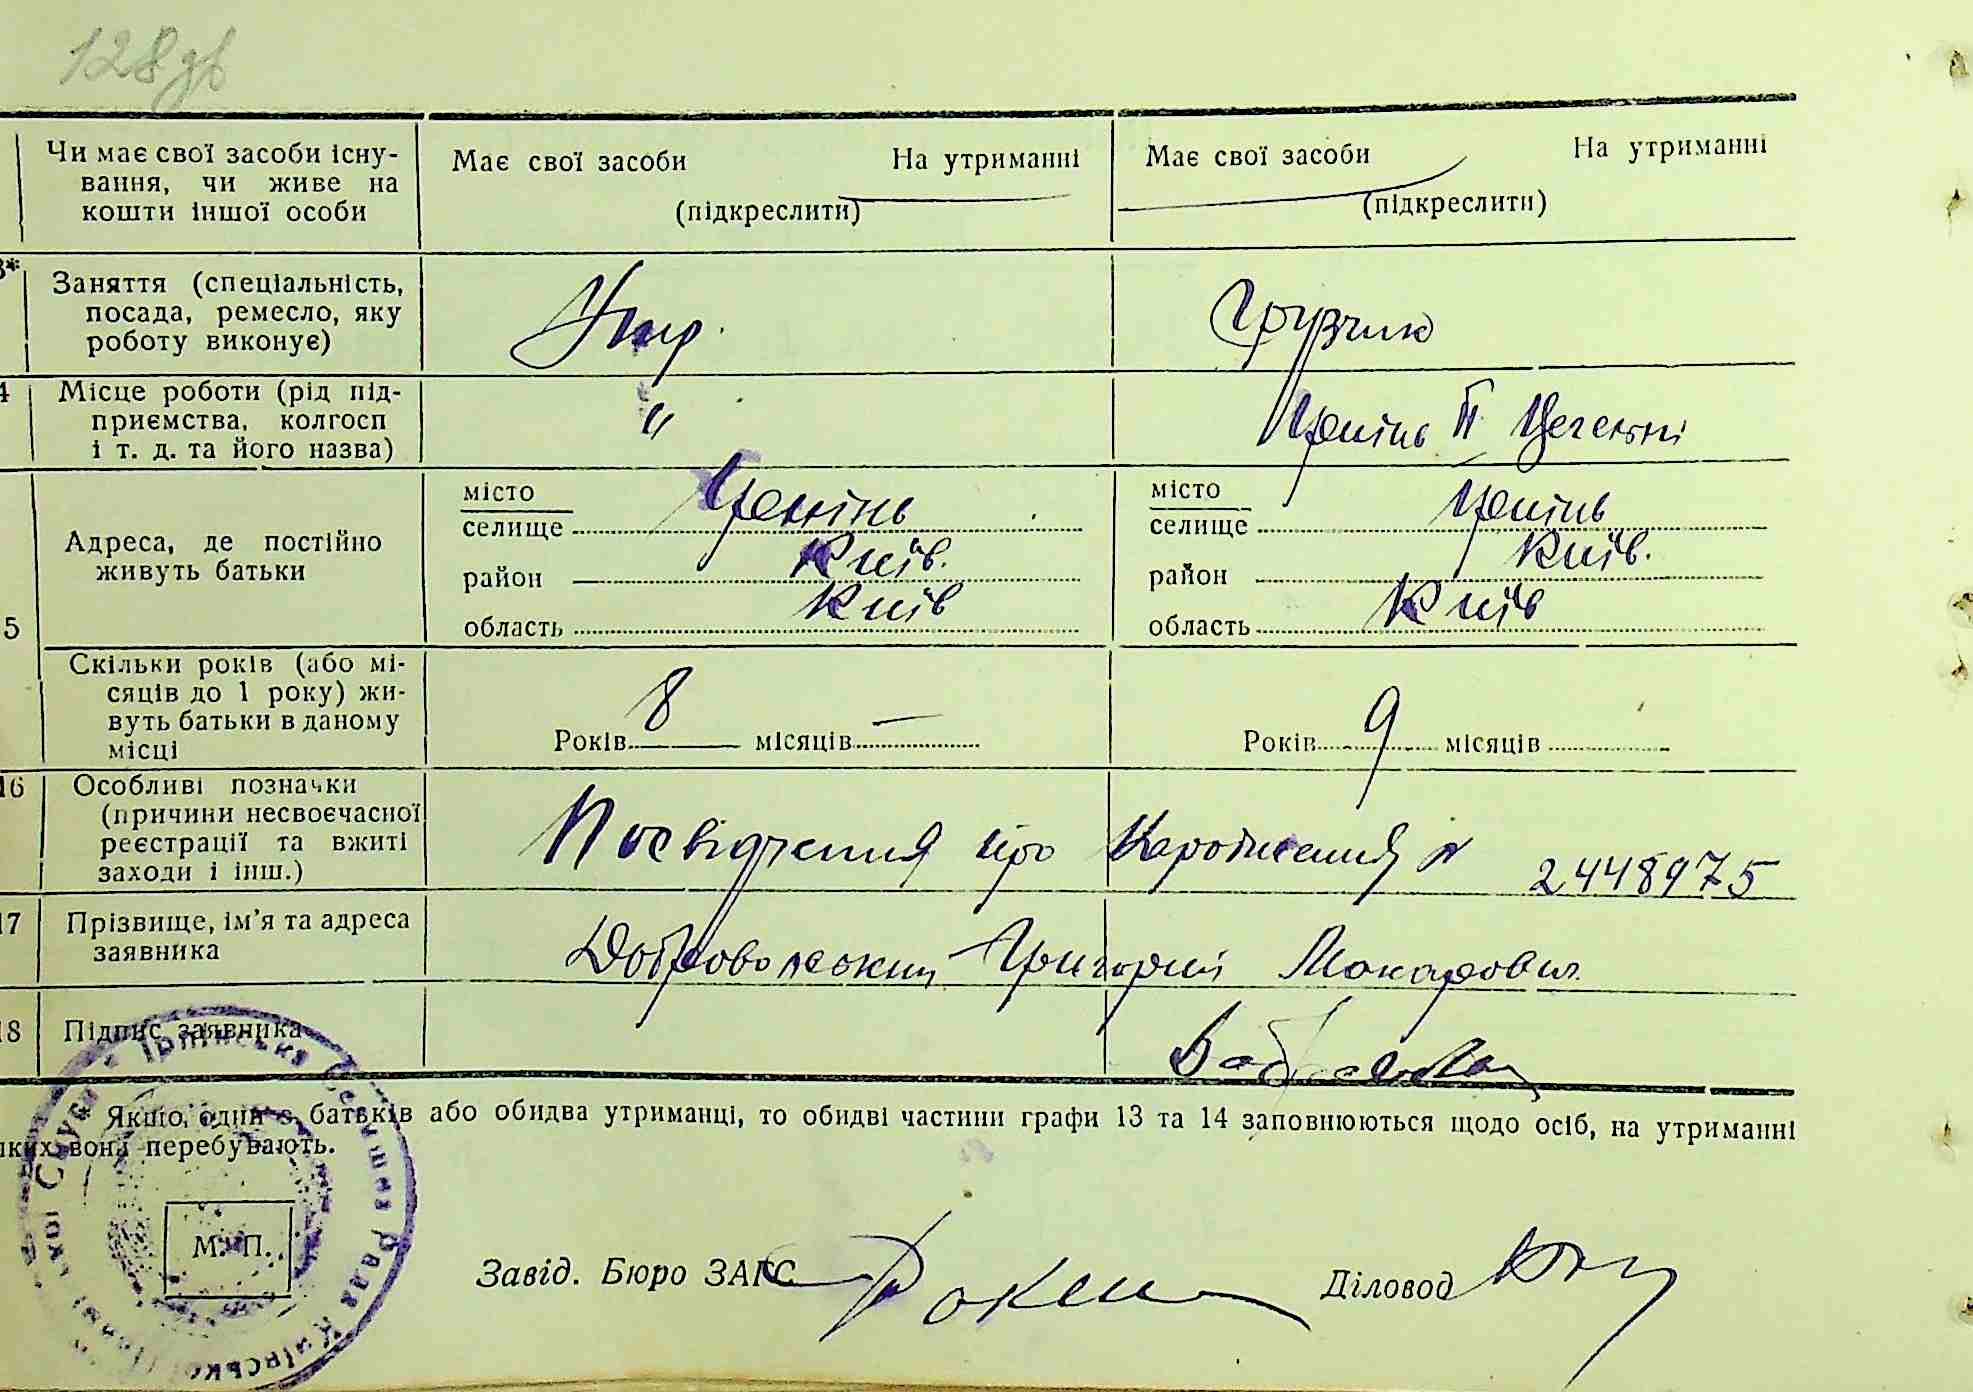 128 зв
Чи має свої засоби існу-
вання, чи живе на
кошти іншої особи
Має свої засоби На утриманні
(підкреслити)
Має свої засоби На утриманні
(підкреслити)
3*
Заняття (спеціальність,
посада, ремесло, яку
роботу виконує)
Утр.
Грузчик
4
Місце роботи (рід під-
приємства, колгосп
і т. д. та його назва)
"
Ірпінь Цегельні
5
Адреса, де постійно
живуть батьки
місто
селище Ірпінь
район Київ.
область Київ
місто
селище Ірпінь
район Київ.
область Київ
Скільки років (або мі-
сяців до 1 року) жи-
вуть батьки в даному
місці
Років 8 місяців —
Років 9 місяців
16
Особливі позначки
(причини несвоєчасної
реєстрації та вжиті
заходи і інш.)
Посвідчення про народження № 2448975
17
Прізвище, ім'я та адреса
заявника
Добровольский Григорий Макарович
18
Підпис заявника
Якщо, один з батьків або обидва утриманці, то обидві частини графи 13 та 14 заповнюються щодо осіб, на утриманні
яких вони перебувають.
Ірпінська Селищна Рада Київської
М. П.
Завід. Бюро ЗАГС
Діловод